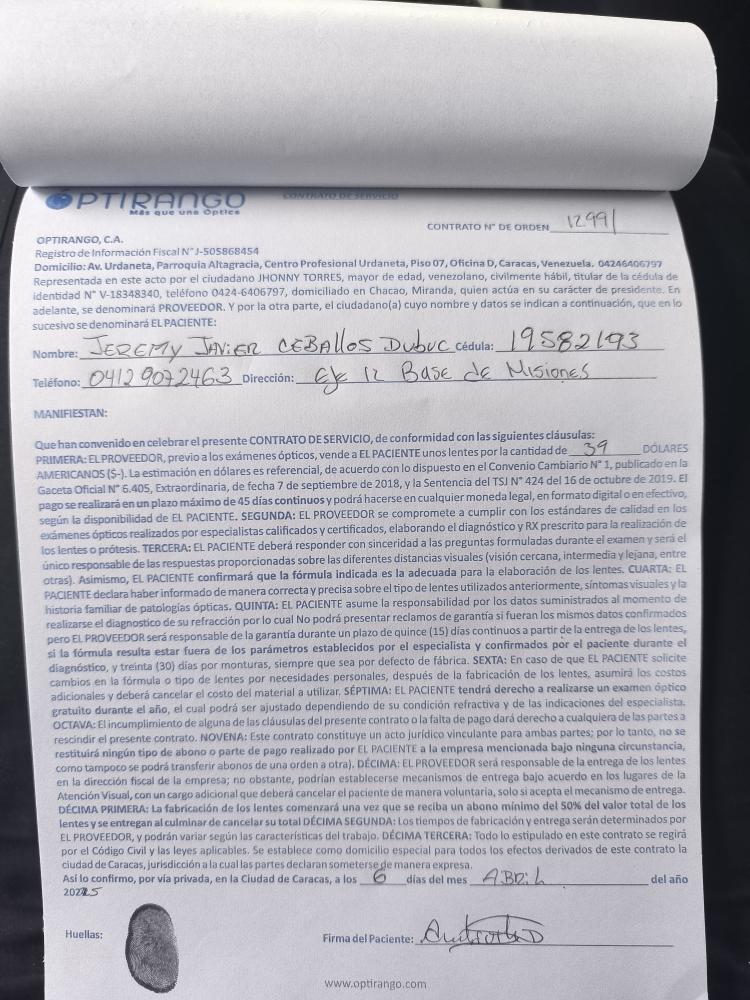 OPTIRANGO
Más que una Óptica
CONTRATO DE SERVICIO
CONTRATO N° DE ORDEN 12991
OPTIRANGO, C.A.
Registro de Información Fiscal N° J-505868454
Domicilio: Av. Urdaneta, Parroquia Altagracia, Centro Profesional Urdaneta, Piso 07, Oficina D, Caracas, Venezuela. 04246406797
Representada en este acto por el ciudadano JHONNY TORRES, mayor de edad, venezolano, civilmente hábil, titular de la cédula de
identidad N° V-18348340, teléfono 0424-6406797, domiciliado en Chacao, Miranda, quien actúa en su carácter de presidente. En
adelante, se denominará PROVEEDOR. Y por la otra parte, el ciudadano(a) cuyo nombre y datos se indican a continuación, que en lo
sucesivo se denominará EL PACIENTE:
Nombre: JEREMY JAVIER CEBAllOS DUBUC Cédula: 19582193
Teléfono: 04129072463 Dirección: EJE 12 BASE dE MISIONES
MANIFIESTAN:
Que han convenido en celebrar el presente CONTRATO DE SERVICIO, de conformidad con las siguientes cláusulas:
PRIMERA: EL PROVEEDOR, previo a los exámenes ópticos, vende a EL PACIENTE unos lentes por la cantidad de 39 DÓLARES
AMERICANOS ($-). La estimación en dólares es referencial, de acuerdo con lo dispuesto en el Convenio Cambiario N° 1, publicado en la
Gaceta Oficial N° 6.405, Extraordinaria, de fecha 7 de septiembre de 2018, y la Sentencia del TSJ N° 424 del 16 de octubre de 2019. El
pago se realizará en un plazo máximo de 45 días continuos y podrá hacerse en cualquier moneda legal, en formato digital o en efectivo,
según la disponibilidad de EL PACIENTE. SEGUNDA: EL PROVEEDOR se compromete a cumplir con los estándares de calidad en los
exámenes ópticos realizados por especialistas calificados y certificados, elaborando el diagnóstico y RX prescrito para la realización de
los lentes o prótesis. TERCERA: EL PACIENTE deberá responder con sinceridad a las preguntas formuladas durante el examen y será el
único responsable de las respuestas proporcionadas sobre las diferentes distancias visuales (visión cercana, intermedia y lejana, entre
otras). Asimismo, EL PACIENTE confirmará que la fórmula indicada es la adecuada para la elaboración de los lentes. CUARTA: EL
PACIENTE declara haber informado de manera correcta y precisa sobre el tipo de lentes utilizados anteriormente, síntomas visuales y la
historia familiar de patologías ópticas. QUINTA: EL PACIENTE asume la responsabilidad por los datos suministrados al momento de
realizarse el diagnostico de su refracción por lo cual No podrá presentar reclamos de garantía si fueran los mismos datos confirmados
pero EL PROVEEDOR será responsable de la garantía durante un plazo de quince (15) días continuos a partir de la entrega de los lentes,
si la fórmula resulta estar fuera de los parámetros establecidos por el especialista y confirmados por el paciente durante el
diagnóstico, y treinta (30) días por monturas, siempre que sea por defecto de fábrica. SEXTA: En caso de que EL PACIENTE solicite
cambios en la fórmula o tipo de lentes por necesidades personales, después de la fabricación de los lentes, asumirá los costos
adicionales y deberá cancelar el costo del material a utilizar. SÉPTIMA: EL PACIENTE tendrá derecho a realizarse un examen óptico
gratuito durante el año, el cual podrá ser ajustado dependiendo de su condición refractiva y de las indicaciones del especialista.
OCTAVA: El incumplimiento de alguna de las cláusulas del presente contrato o la falta de pago dará derecho a cualquiera de las partes a
rescindir el presente contrato. NOVENA: Este contrato constituye un acto jurídico vinculante para ambas partes; por lo tanto, no se
restituirá ningún tipo de abono o parte de pago realizado por EL PACIENTE a la empresa mencionada bajo ninguna circunstancia,
como tampoco se podrá transferir abonos de una orden a otra). DÉCIMA: EL PROVEEDOR será responsable de la entrega de los lentes
en la dirección fiscal de la empresa; no obstante, podrían establecerse mecanismos de entrega bajo acuerdo en los lugares de la
Atención Visual, con un cargo adicional que deberá cancelar el paciente de manera voluntaria, solo si acepta el mecanismo de entrega.
DÉCIMA PRIMERA: La fabricación de los lentes comenzará una vez que se reciba un abono mínimo del 50% del valor total de los
lentes y se entregan al culminar de cancelar su total DÉCIMA SEGUNDA: Los tiempos de fabricación y entrega serán determinados por
EL PROVEEDOR, y podrán variar según las características del trabajo. DÉCIMA TERCERA: Todo lo estipulado en este contrato se regirá
por el Código Civil y las leyes aplicables. Se establece como domicilio especial para todos los efectos derivados de este contrato la
ciudad de Caracas, jurisdicción a la cual las partes declaran someterse de manera expresa.
Así lo confirmo, por vía privada, en la Ciudad de Caracas, a los 6 días del mes ABRIL del año
2025
Huellas:
Firma del Paciente:
www.optirango.com